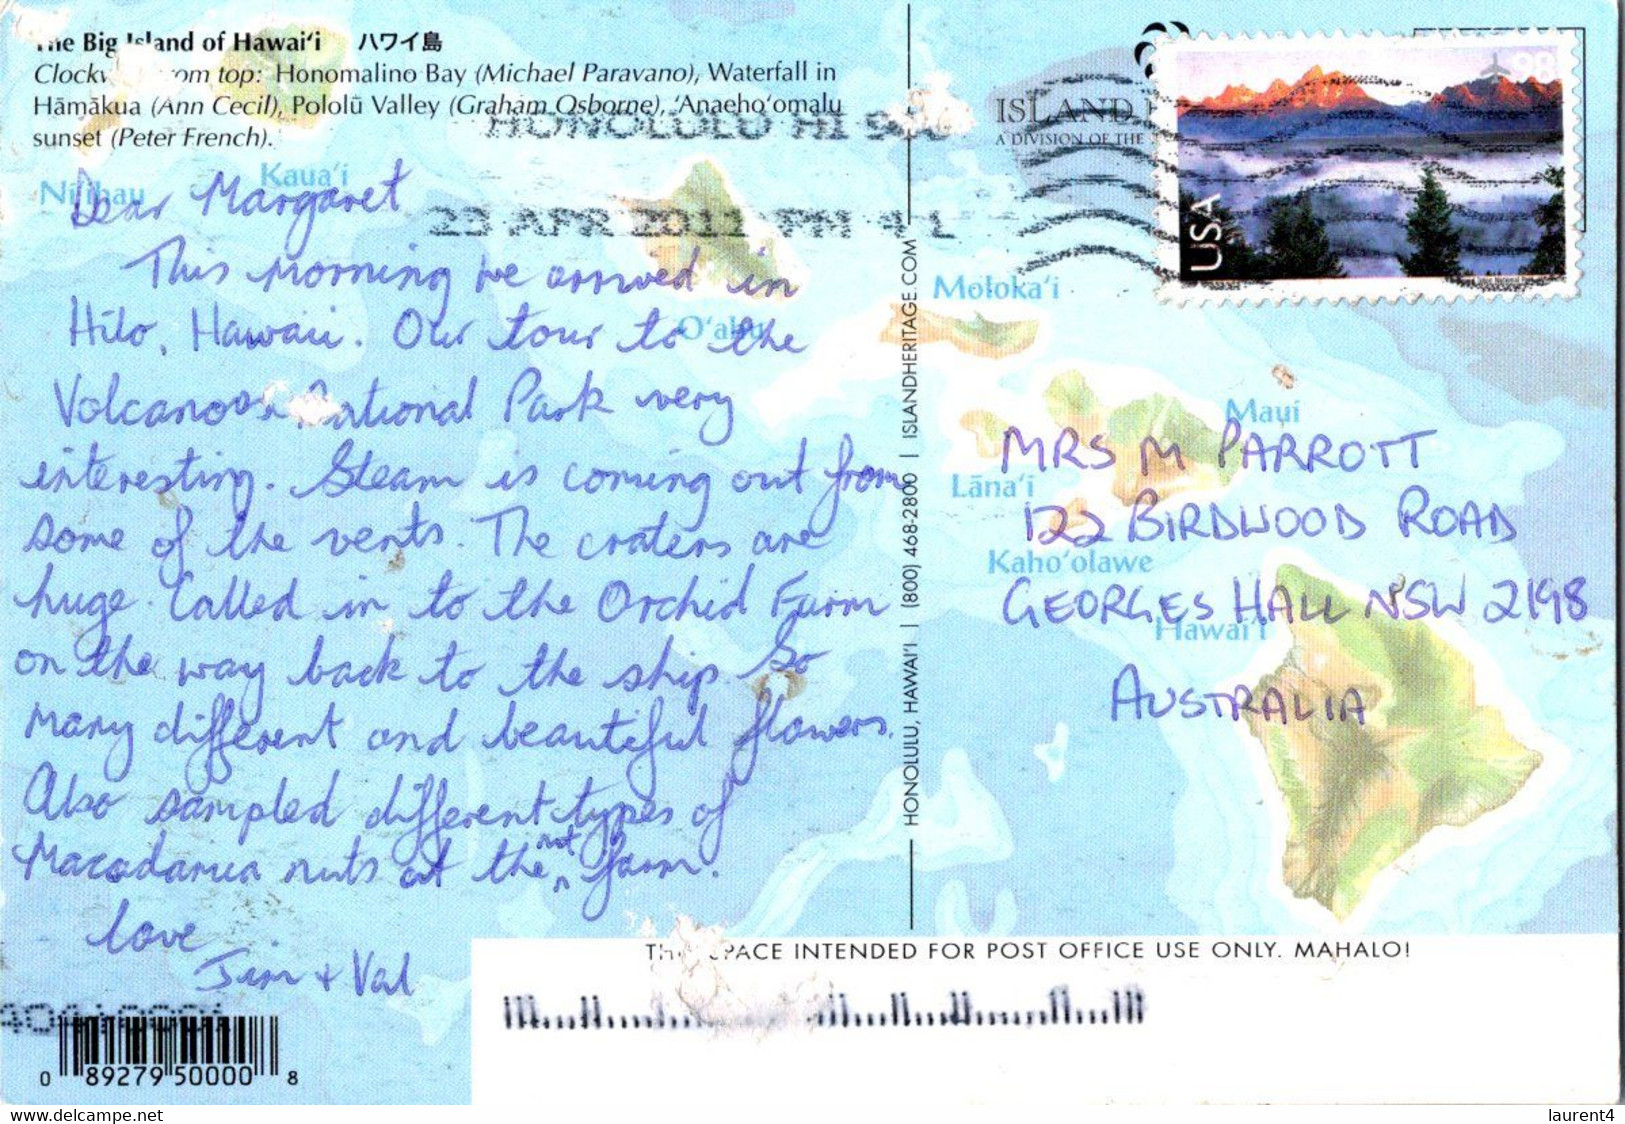 The Big Island of Hawai‘i ハワイ島
Clockwise from top: Honomalino Bay (Michael Paravano), Waterfall in
Hāmākua (Ann Cecil), Pololū Valley (Graham Osborne), ‘Anaeho‘omalu
sunset (Peter French).
HONOLULU HI
23 APR 2011 PM 4 L
ISLAND
A DIVISION OF THE
USA
98
Ni‘ihau
Kaua‘i
O‘ahu
Moloka‘i
Maui
Lāna‘i
Kaho‘olawe
Hawai‘i
Dear Margaret
This morning we arrived in
Hilo, Hawaii. Our tour to the
Volcanoes National Park very
interesting. Steam is coming out from
some of the vents. The craters are
huge. Called in to the Orchid Farm
on the way back to the ship. So
many different and beautiful flowers.
Also sampled different types of
Macadamia nuts at the nut farm.
love
Jim + Val
HONOLULU, HAWAI‘I | (800) 468-2800 | ISLANDHERITAGE.COM
MRS M PARROTT
122 BIRDWOOD ROAD
GEORGES HALL NSW 2198
AUSTRALIA
THIS SPACE INTENDED FOR POST OFFICE USE ONLY. MAHALO!
0 89279 50000 8
laurent4